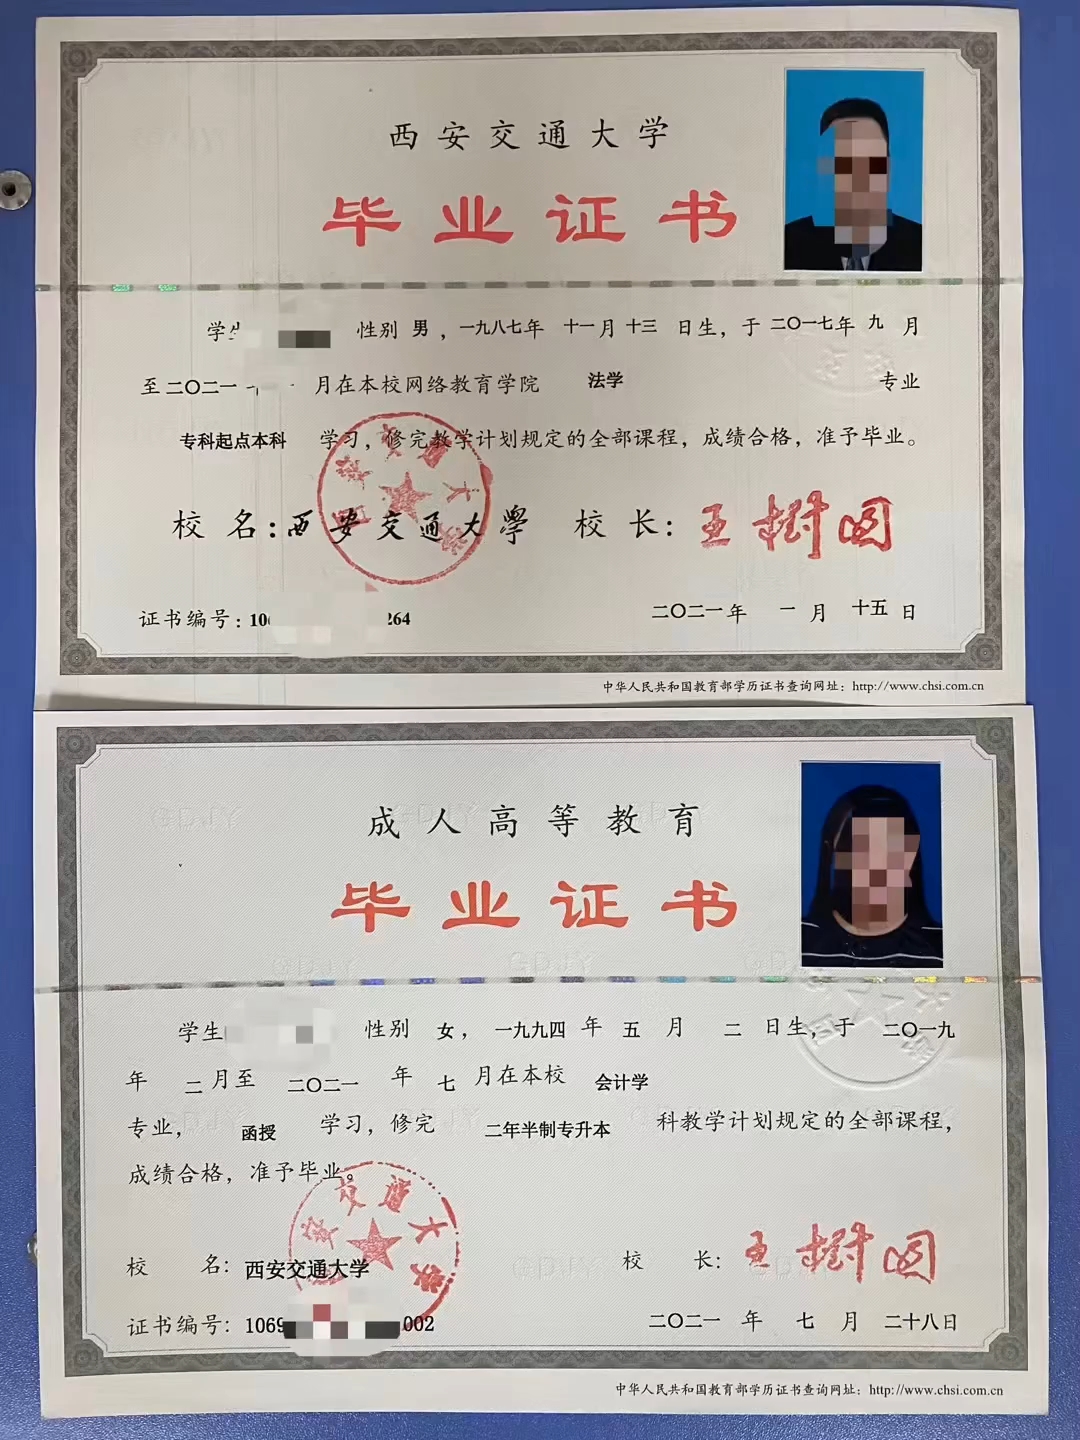 西安交通大学
毕业证书
学生 性别 男，一九八七年 十一月 十三 日生，于 二〇一七年 九 月
至二〇二一 月在本校网络教育学院 法学 专业
专科起点本科 学习，修完教学计划规定的全部课程，成绩合格，准予毕业。
校 名：西安交通大學 校 长：王樹国
证书编号：10 264 二〇二一年 一 月 十五 日
中华人民共和国教育部学历证书查询网址：http://www.chsi.com.cn
成人高等教育
毕业证书
学生 性别 女，一九九四 年 五 月 二 日生，于 二〇一九
年 二 月至 二〇二一 年 七 月在本校 会计学
专业， 函授 学习，修完 二年半制专升本 科教学计划规定的全部课程，
成绩合格，准予毕业。
校 名：西安交通大学 校 长：王樹国
证书编号：1069 002 二〇二一 年 七 月 二十八日
中华人民共和国教育部学历证书查询网址：http://www.chsi.com.cn